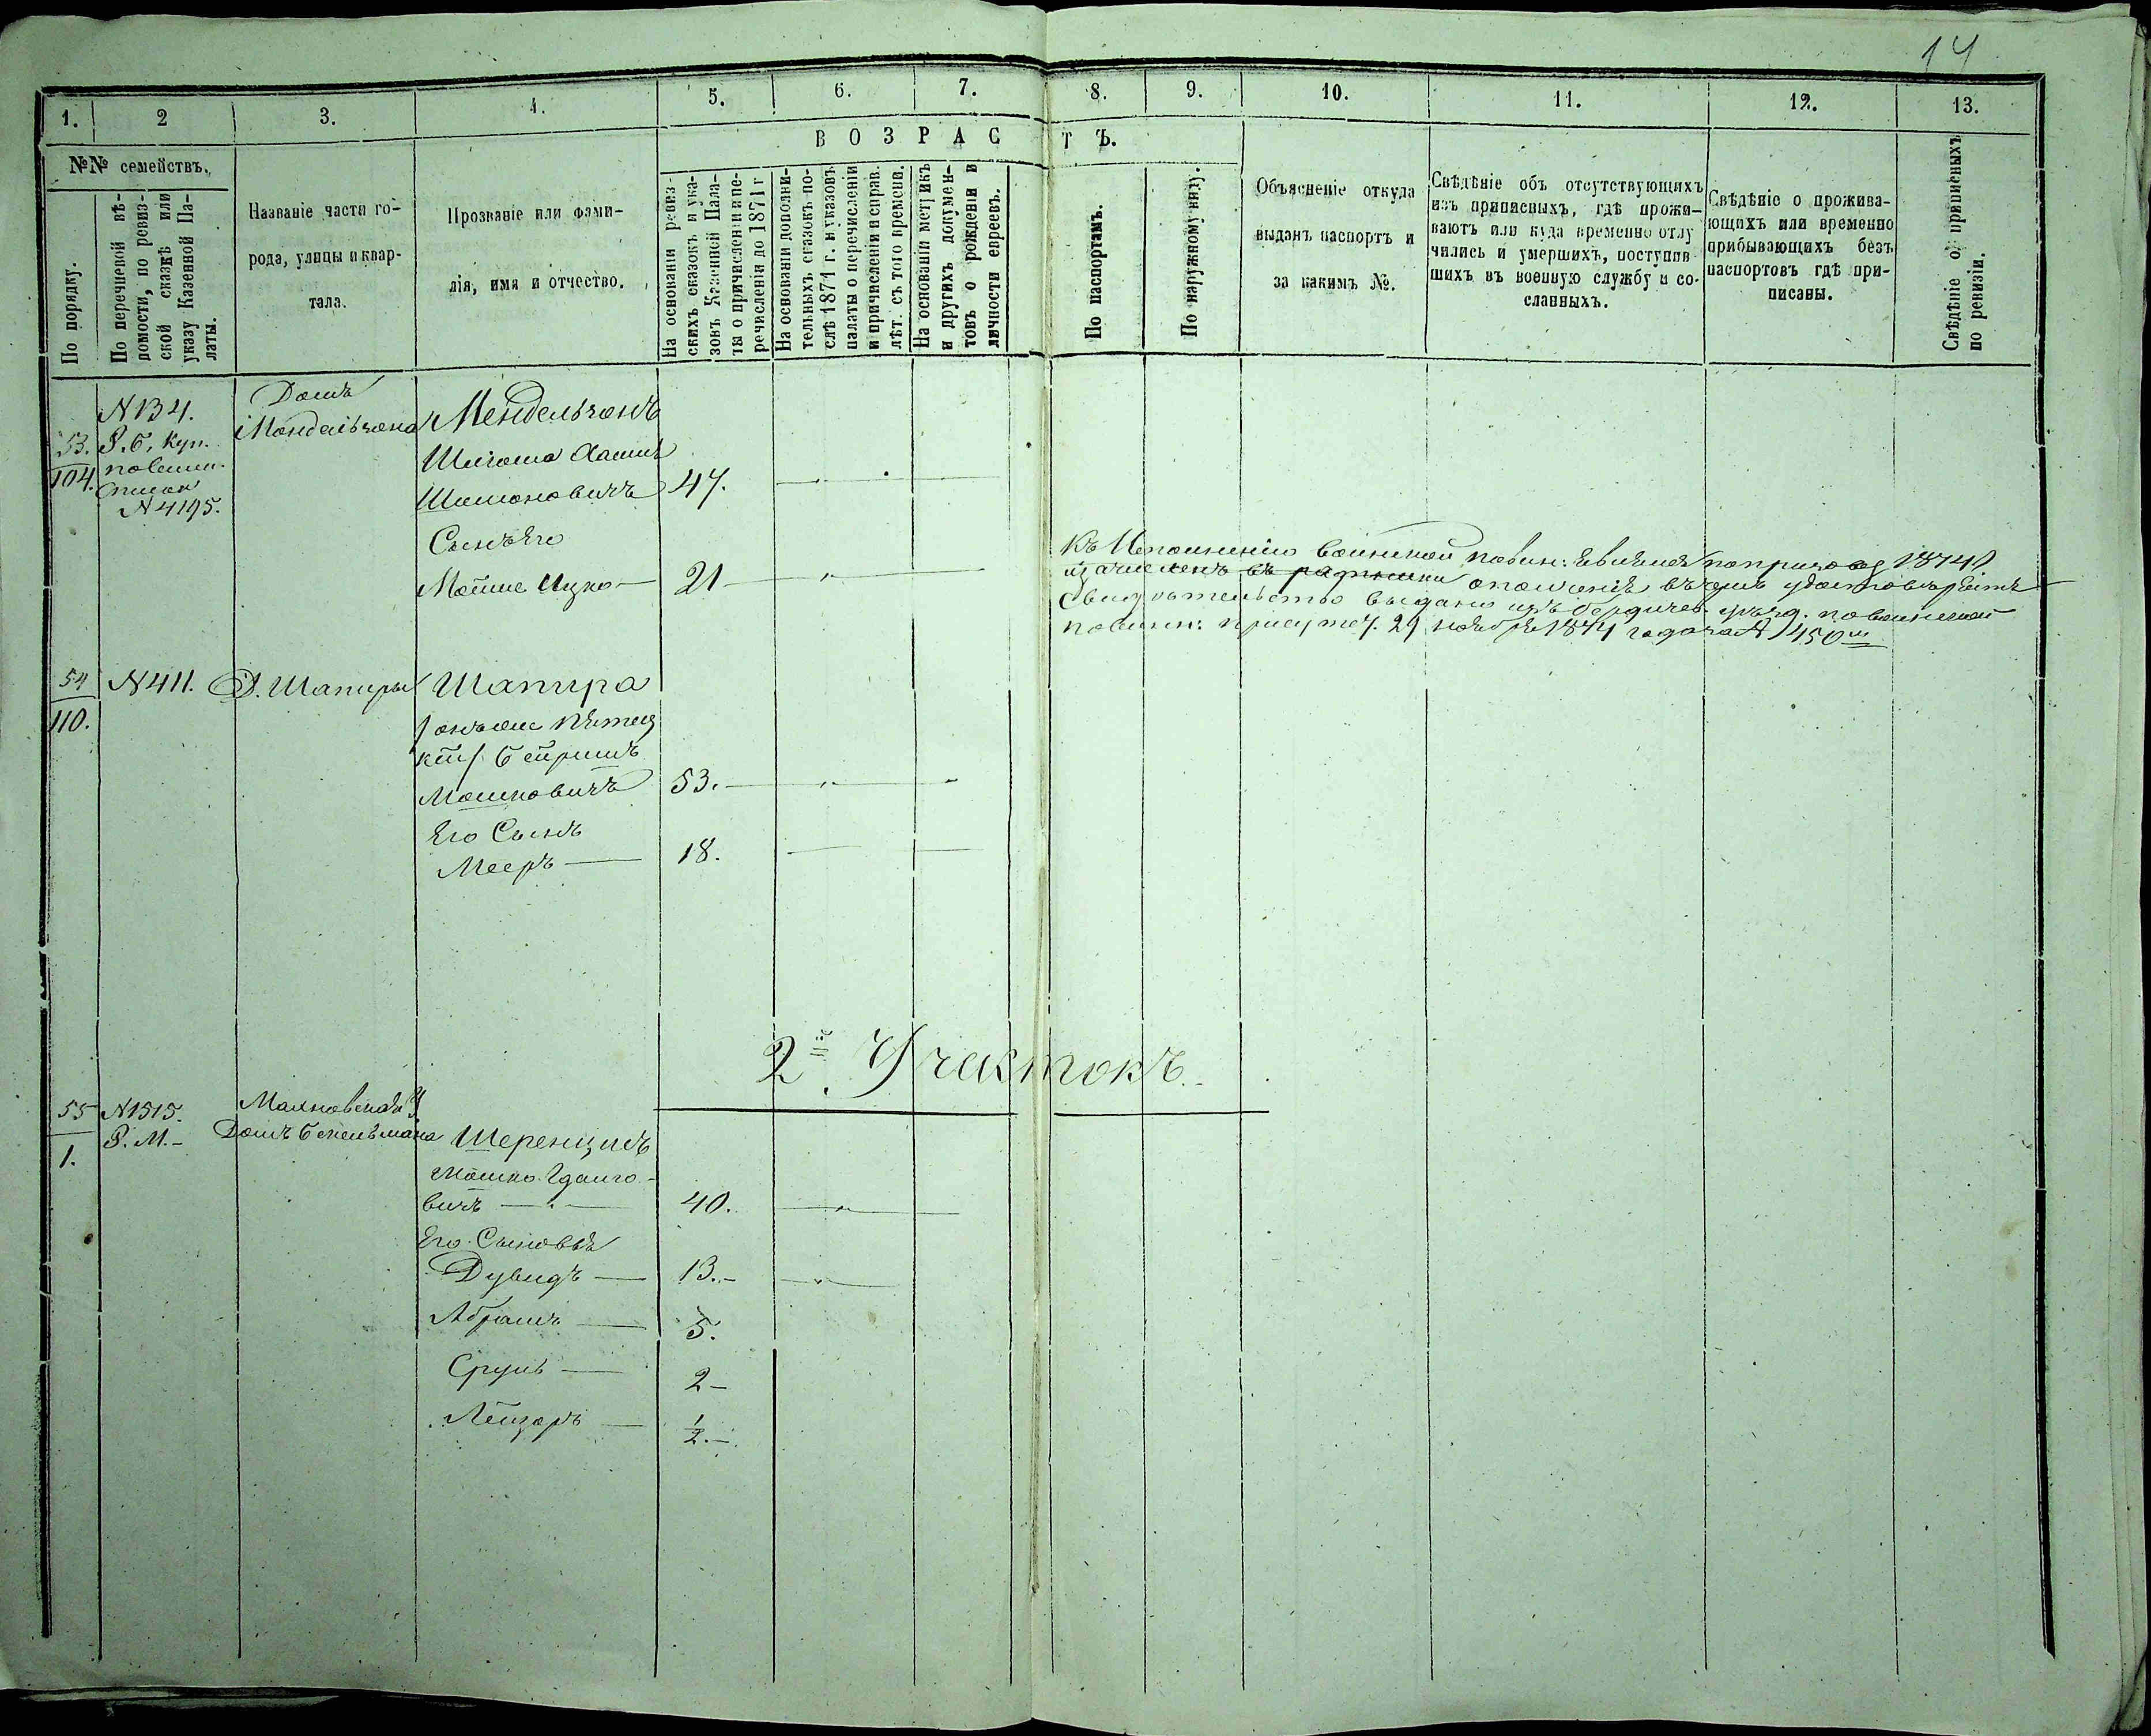 14
1. 2 3. 4. 5. 6. 7. 8. 9. 10. 11. 12. 13.
В О З Р А С Т Ъ.
№№ семействъ.
По порядку.
По перечневой вѣ-
домости, по ревиз-
ской сказкѣ или
указу Казенной Па-
латы.
Названіе части го-
рода, улицы и квар-
тала.
Прозваніе или фами-
лія, имя и отчество.
На основаніи ревиз-
скихъ сказокъ и ука-
зовъ Казенной Пала-
ты о причисленіи и пе-
речисленіи до 1871 г
На основаніи дополни-
тельныхъ сказокъ по-
слѣ 1871 г. и указовъ
палаты о перечисленіи
и причисленіи и справ.
лѣт. съ того времени.
На основаніи метрикъ
и другихъ докумен-
товъ о рожденіи и
личности евреевъ.
По паспортамъ.
По наружному виду.
Объясненіе откуда
выданъ паспортъ и
за какимъ №.
Свѣдѣніе объ отсутствующихъ
изъ приписныхъ, гдѣ прожи-
ваютъ или куда временно отлу
чились и умершихъ, поступив-
шихъ въ военную службу и со-
сланныхъ.
Свѣдѣніе о прожива-
ющихъ или временно
прибывающихъ безъ
паспортовъ гдѣ при-
писаны.
Свѣдѣніе о приписныхъ
по ревизіи.
Домъ
N134. Мендельзона Мендельзонъ
53. Р.Б. Куп.
104. повинн.
N4195.
Шимоновичъ 47.
Сынъ Его
Мойше Ицко — 21
Къ Исполненію воинской повин: явился по призову 1874 г
зачисленъ въ ратники ополченія въ чемъ удостовѣреніе
Свидѣтельство выдано изъ Бердичев. уѣзд. по воинской
повинн: присутст. 29 ноября 1874 года за № 1450
54 N411. Д. Шапиры Шапира
110.
Мошковичъ 53.
Его Сынъ
Мееръ — 18.
2й Участокъ.
55 N1515. Махновская у
1. Р. М.- Домъ Шеренцисъ
Мошко
вичъ — 40.
Его Сыновья
Дувидъ — 13.-
Абрамъ — 5.
Сруль — 2-
Лейзоръ — ½.-